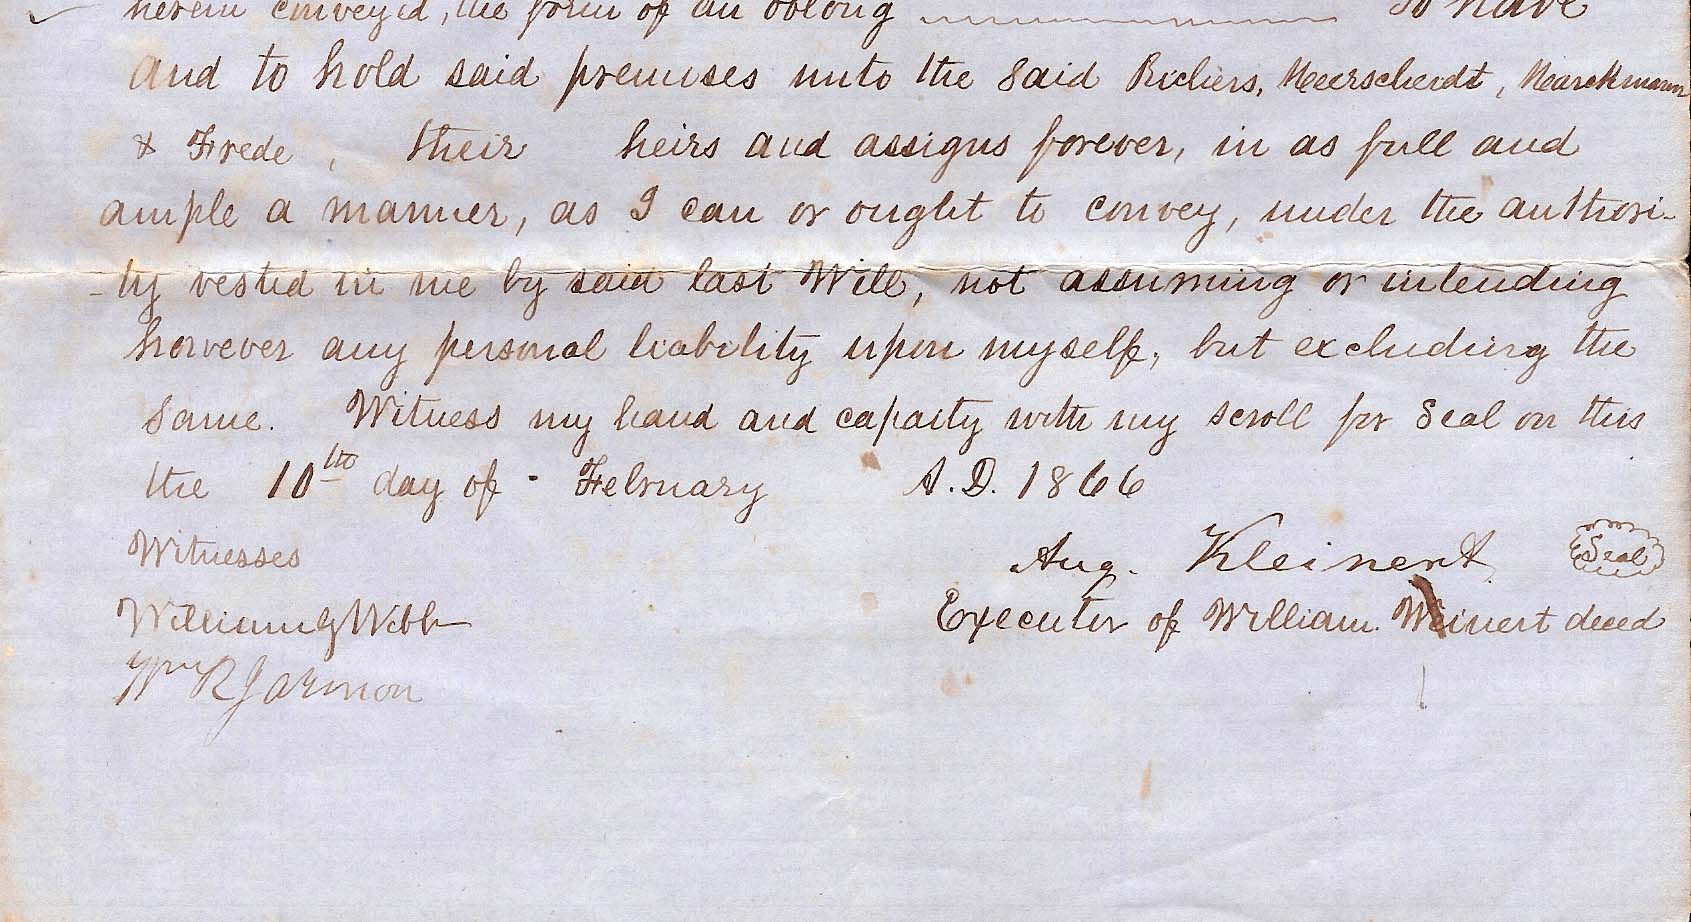 herein conveyed, the form of an oblong To have
and to hold said premises unto the said Richers, Meerscheidt, Marckmann
& Frede, their heirs and assigns forever, in as full and
ample a manner, as I can or ought to convey, under the authori-
-ty vested in me by said last Will, not assuming or intending
however any personal liability upon myself, but excluding the
same. Witness my hand and capacity with my scroll for Seal on this
the 10th day of February A.D. 1866
Witnesses
Aug. Kleinert Seal
William G Webb
Executor of William Weinert deced
Wm R Jarmon